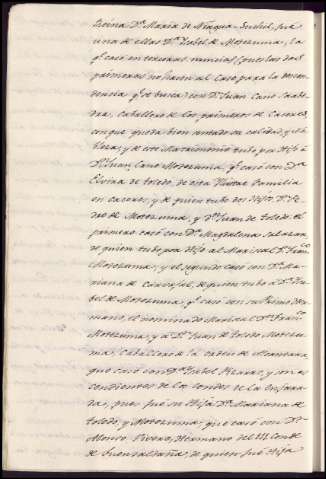 Reina D.ª Maria de Niagua Suchil, fue
una de ellas D.ª Isabel de Motezuma, la
q.e casó en terceras nuncias (pues las dos
primeras no hacen al caso para la decen-
dencia q.e se busca) con D.n Juan Cano Saabe-
dra, Caballero de los primeros de Caceres,
con que queda bien notado su calidad, y no-
bleza; y de este Matrimonio tubo por Hijo á
D.n Juan Cano Motezuma, q.e casó con D.ª
Elvira de toledo, de esta Ilustre Familia
en caceres, y de quien tubo dos Hijos D.n Pe-
dro de Motezuma, y D.n Juan de toledo. el
primero casó con D.ª Magdalena
de quien tubo por Hijo al Mariscal D.n Fran.co
Motezuma; y el segundo casó con D.ª Ma-
riana de Carvajal, de quien tubo a D.ª Isa-
bel de Motezuma, q.e casó con su Primo Her-
mano, el nominado Mariscal D.n Fran.co
Motezuma; y á D.n Juan de toledo Motezu-
ma, Caballero de la orden de Alcantara,
que casó con D.ª Isabel Pizarro, y son as-
cendientes de los Condes de la Enjarada
da, pues fué su Hija D.ª Mariana de
toledo, y Motezuma, que casó con D.n
Alonso Vivero, Hermano del III Conde
de fuensaldaña, de quien fué Hija